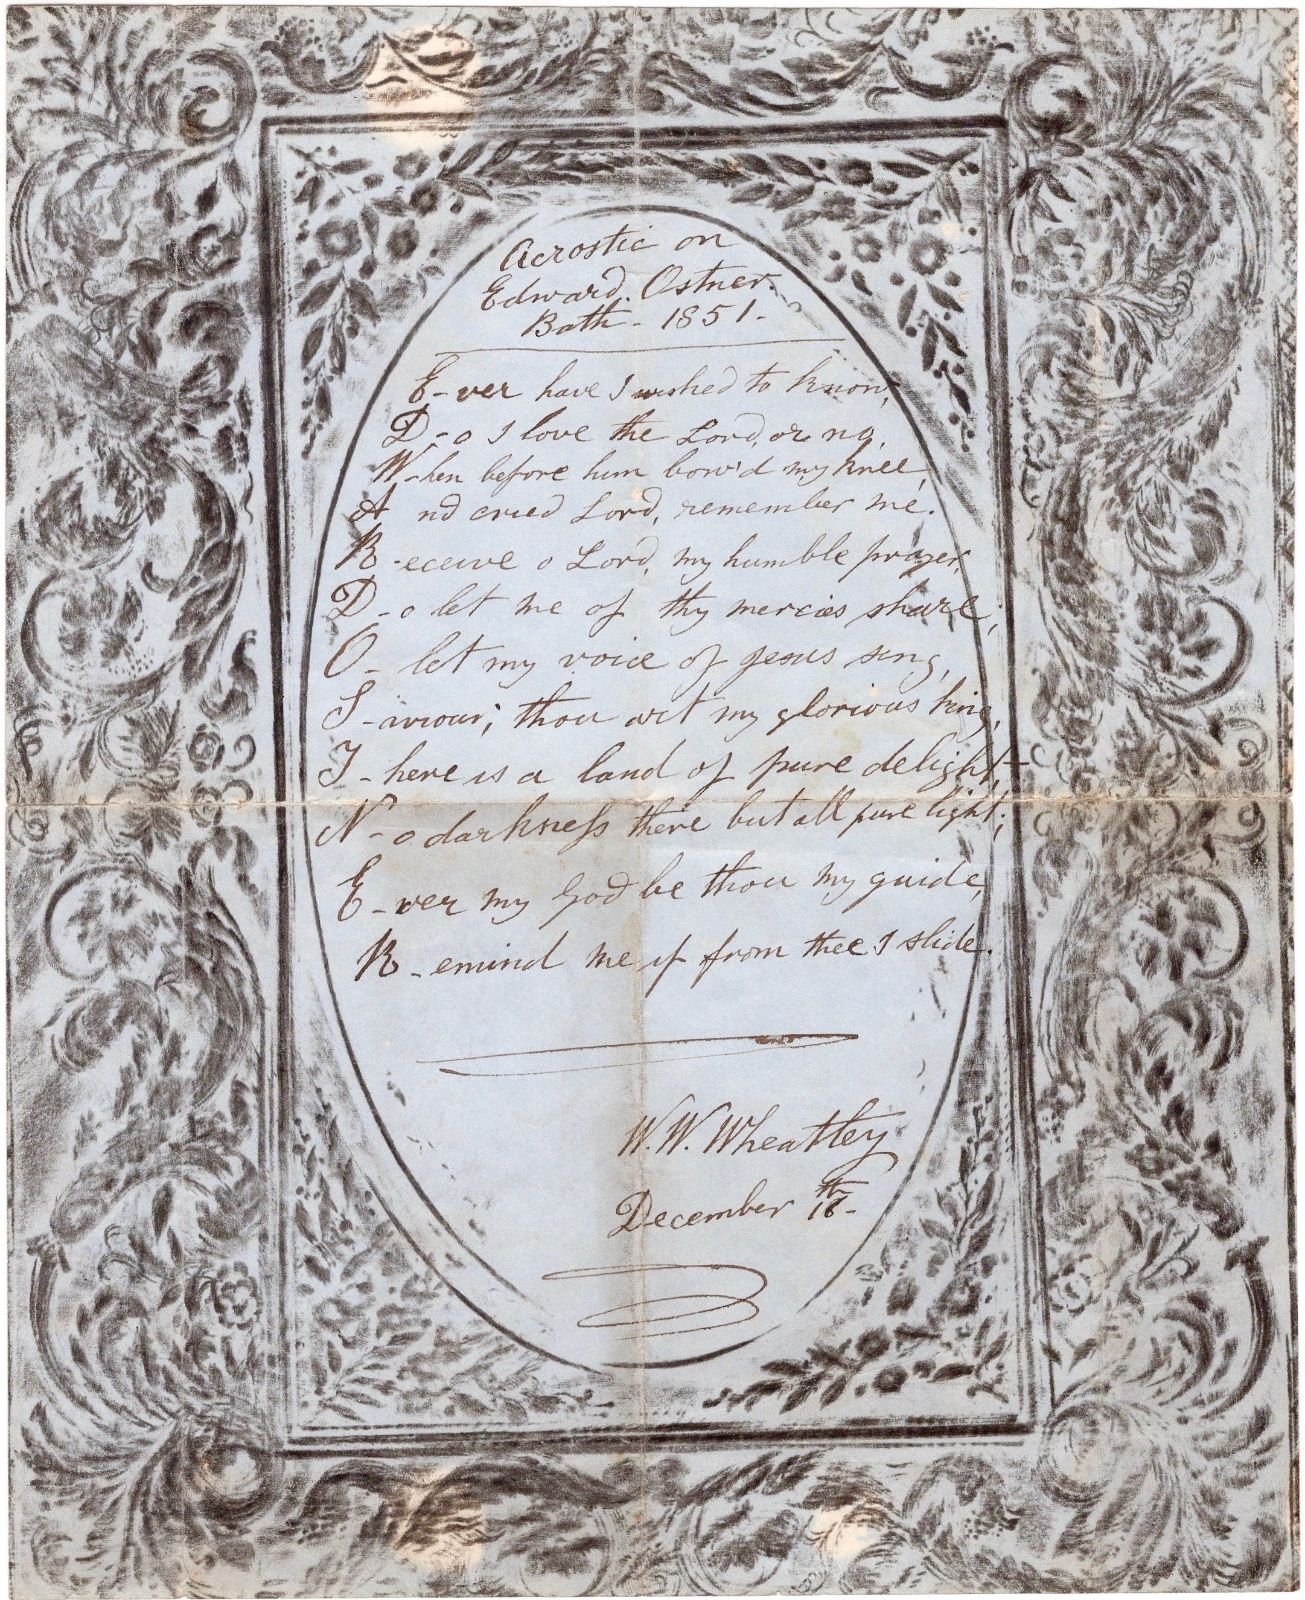 Acrostic on
Edward. Ostner.
Bath - 1851 -
E-ver have I wished to know,
D-o I love the Lord, or no,
W-hen before him bow'd my knee,
A nd cried Lord, remember me.
R-eceive o Lord, my humble prayer,
D-o let me of thy mercies share;
O- let my voice of Jesus sing,
S-aviour; thou art my glorious king,
T-here is a land of pure delight,
N-o darkness there but all pure light;
E-ver my God be thou my guide,
R-emind me if from thee I slide.
W. W. Wheatley
December 16th-